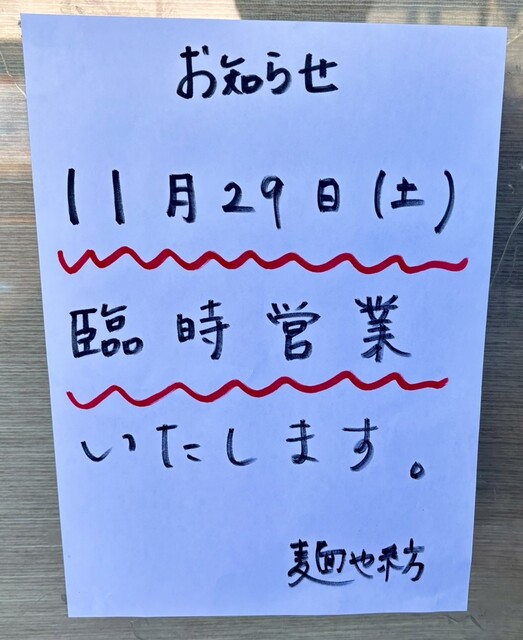 お知らせ
11月29日(土)
臨時営業
いたします。
麺や